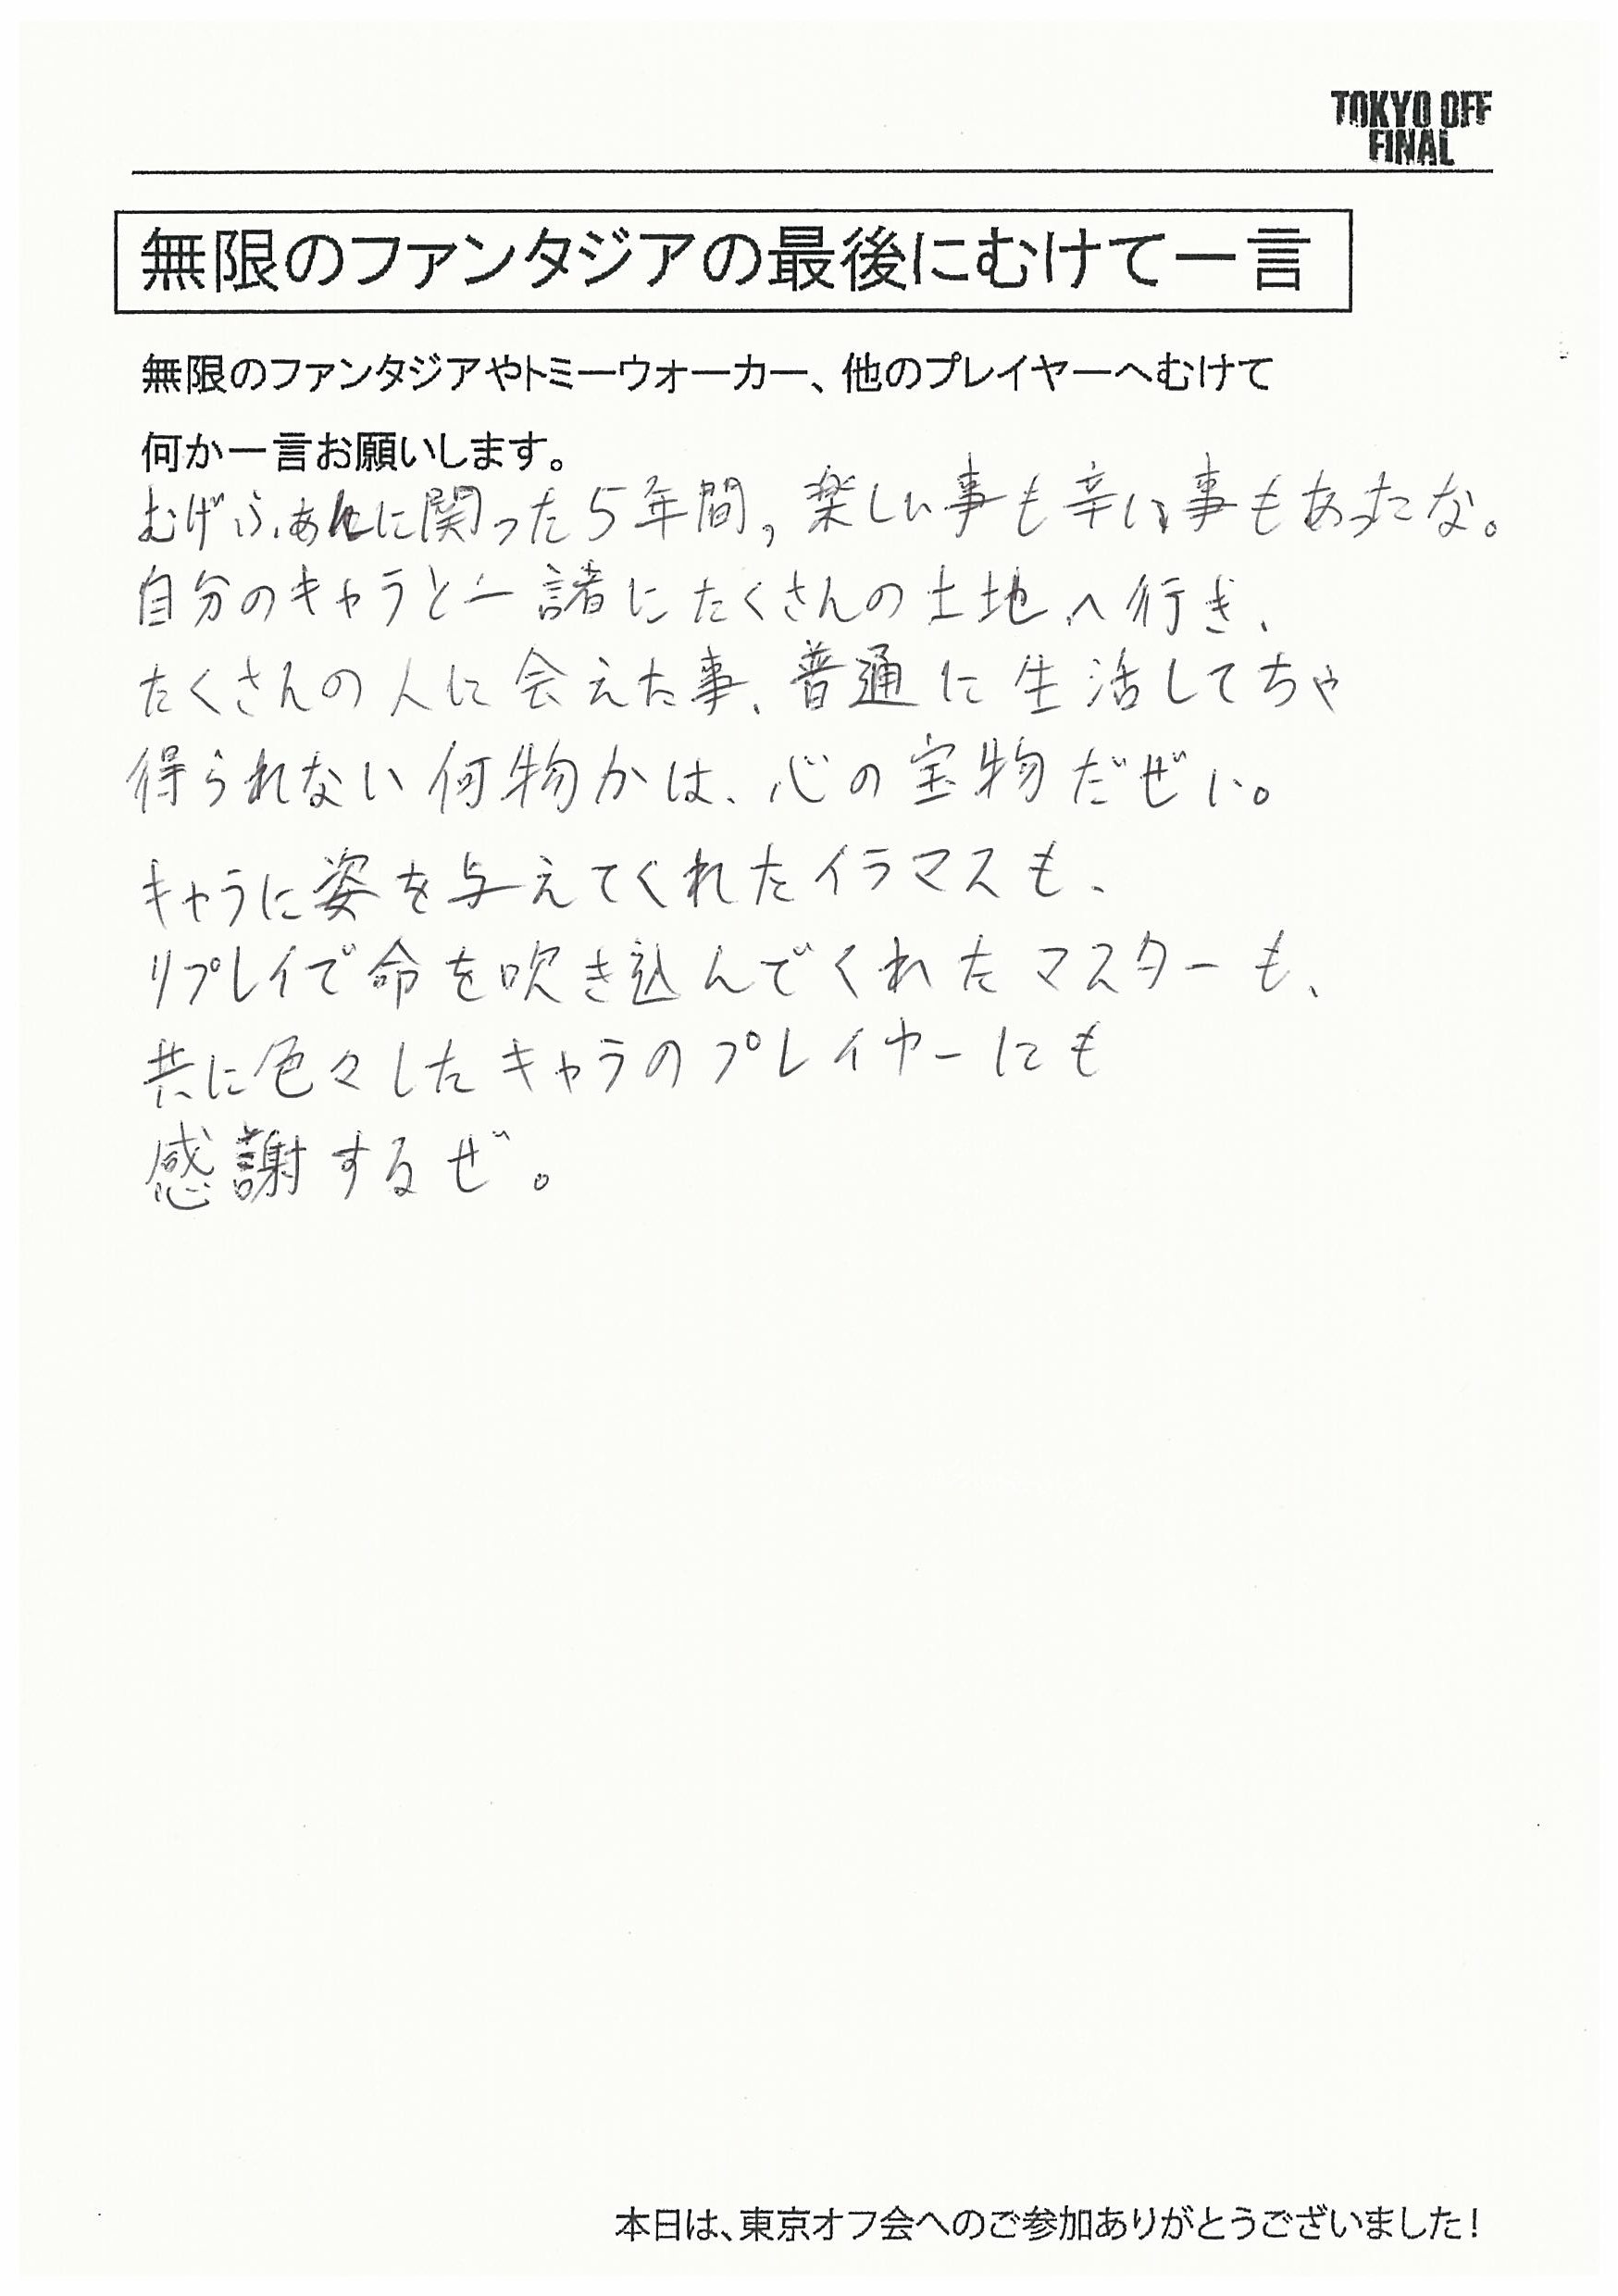 TOKYO OFF
FINAL
無限のファンタジアの最後にむけて一言
無限のファンタジアやトミーウォーカー、他のプレイヤーへむけて
何か一言お願いします。
むげふぁんに関った5年間,楽しい事も辛い事もあったな。
自分のキャラと一諸にたくさんの土地へ行き、
たくさんの人に会えた事、普通に生活してちゃ
得られない何物かは、心の宝物だぜい。
キャラに姿を与えてくれたイラマスも、
リプレイで命を吹き込んでくれたマスターも、
共に色々したキャラのプレイヤーにも
感謝するぜ。
本日は、東京オフ会へのご参加ありがとうございました!